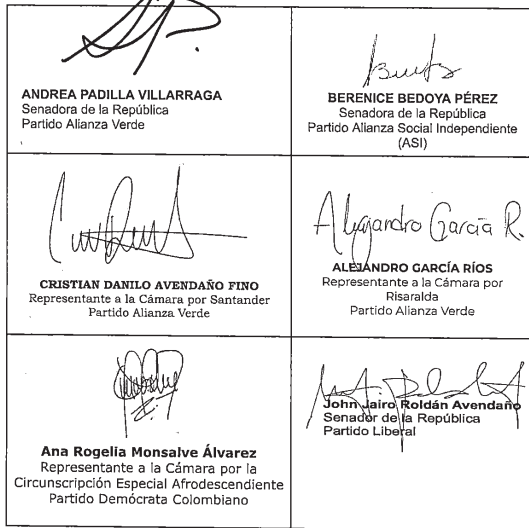 ANDREA PADILLA VILLARRAGA
Senadora de la República
Partido Alianza Verde
BERENICE BEDOYA PÉREZ
Senadora de la República
Partido Alianza Social Independiente
(ASI)
CRISTIAN DANILO AVENDAÑO FINO
Representante a la Cámara por Santander
Partido Alianza Verde
Alejandro García R.
ALEJANDRO GARCÍA RÍOS
Representante a la Cámara por
Risaralda
Partido Alianza Verde
Ana Rogelia Monsalve Álvarez
Representante a la Cámara por la
Circunscripción Especial Afrodescendiente
Partido Demócrata Colombiano
John Jairo Roldán Avendaño
Senador de la República
Partido Liberal